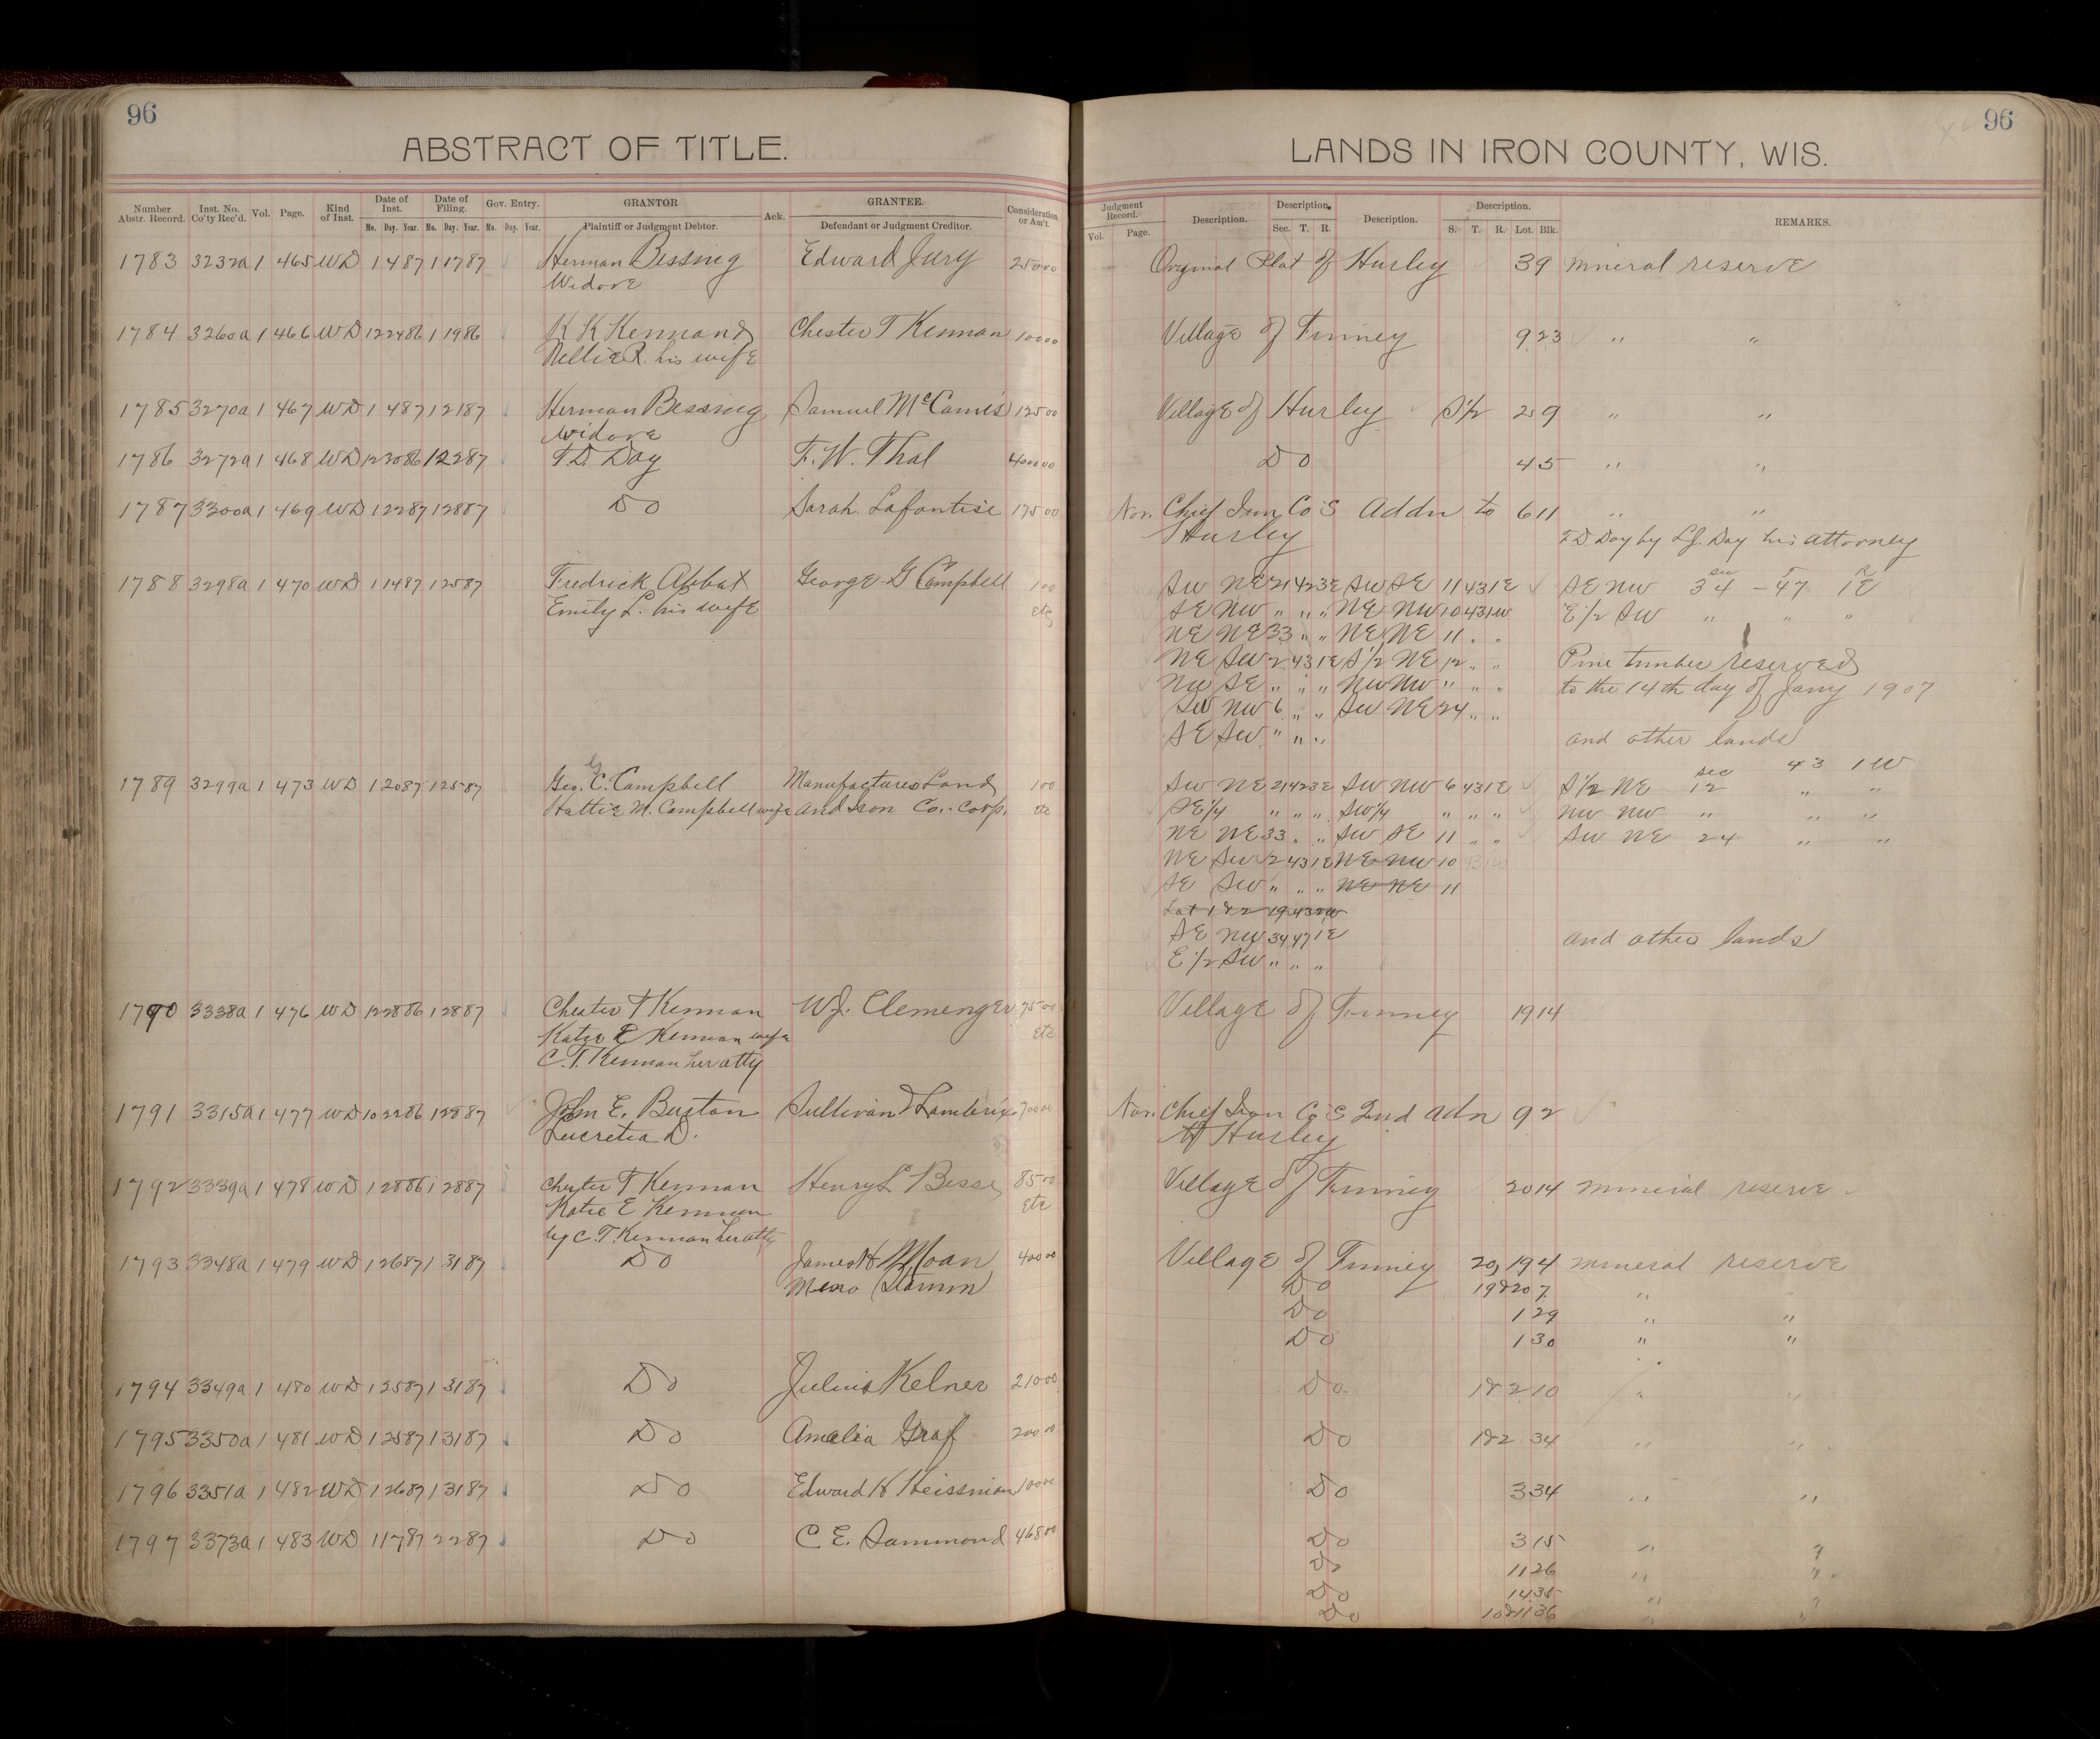 96
ABSTRACT OF TITLE.
Number Abstr. Record. Inst. No. Co'ty Rec'd. Vol. Page. Kind of Inst. Date of Inst. Date of Filing. Gov. Entry. GRANTOR Ack. GRANTEE. Consideration or Am't.
Mo. Day. Year. Mo. Day. Year. Mo. Day. Year. Plaintiff or Judgment Debtor. Defendant or Judgment Creditor.
1783 3232a 1 465 WD 1 4 87 1 17 87 Herman Bessnig Edward Jury 250 00
Widore
1784 3260a 1 466 WD 12 24 86 1 19 86 K K Kennan & Chester T Kennan 100 00
Nellie R. his wife
1785 3270a 1 467 WD 1 4 87 1 21 87 Herman Bessnig Samuel McCamis 125 00
Widore
1786 3272a 1 468 WD 12 30 86 1 22 87 F. D. Day F. W. Thal 400 00
1787 3300a 1 469 WD 1 22 87 1 28 87 Do Sarah Lafontise 175 00
1788 3298a 1 470 WD 1 14 87 1 25 87 Fredrick Abbat George G Campbell 1 00
Emily L. his wife etc
1789 3299a 1 473 WD 1 20 87 1 25 87 Geo. C. Campbell Manufactures Land 1 00
G
Hattie M. Campbell wife and Iron Co. Corp. etc
1790 3338a 1 476 WD 12 28 86 1 28 87 Chester T Kennan W J. Clemenger 75 00
Katie E Kennan wife etc
C. T. Kennan her atty
1791 3315a 1 477 WD 10 22 86 1 28 87 John E. Burton Sullivan & Lambrix 700 00
Lucretia D.
1792 3339a 1 478 WD 1 28 86 1 28 87 Chester T Kennan Henry L Besse 85 00
Katie E Kennan etc
by C. T. Kennan her atty
1793 3348a 1 479 WD 1 26 87 1 31 87 Do James H Moan 400 00
Meno Stamm
1794 3349a 1 480 WD 1 25 87 1 31 87 Do Julius Kelner 210 00
1795 3350a 1 481 WD 1 25 87 1 31 87 Do Amalia Graf 200 00
1796 3351a 1 482 WD 1 26 87 1 31 87 Do Edward H Heissman 100 00
1797 3373a 1 483 WD 1 17 87 2 2 87 Do C E. Sammond 468 00
96
LANDS IN IRON COUNTY, WIS.
Judgment Record. Description. Description. Description. Description. REMARKS.
Vol. Page. Sec. T. R. S. T. R. Lot. Blk.
Original Plat of Hurley 3 9 mineral reserve
Village of Finney 9 23 " "
Village of Hurley S1/2 2 9 " "
Do 4 5 " "
Nor. Chief Iron Co's Addn to 6 11 " "
Hurley F. D. Day by L. J. Day his attorney
SW NE 21 42 3E SW SE 11 43 1E SE NW sec 34 - T 47 R 1E
SE NW " " " NE NW 10 43 1W E 1/2 SW " " "
NE NE 33 " " NE NE 11 " "
NE SW 2 43 1E S1/2 NE 12 " " Pine timber reserved
NW SE " " " NW NW " " " to the 14th day of Jany 1907
SW NW 6 " " SW NE 24 " "
SE SW " " " and other lands
SW NE 21 42 3E SW NW 6 43 1E S1/2 NE sec 12 43 1W
SE 1/4 " " " SW 1/4 " " " NW NW " " "
NE NE 33 " " SW SE 11 " " SW NE 24 " "
NE SW 2 43 1E NE NW 10 43 1W
SE SW " " " NE NE 11
Lot 1 & 2 19 43 2W
SE NW 34 47 1E and other lands
E 1/2 SW " " "
Village of Finney 19 14
Nor. Chief Iron Co's 2nd Adn 9 2
to Hurley
Village of Finney 20 14 mineral reserve
Village of Finney 20, 19 4 mineral reserve
Do 19 & 20 7 " "
Do 1 29 " "
Do 1 30 " "
Do 1 & 2 10 " "
Do 1 & 2 34 " "
Do 3 34 " "
Do 3 15 " "
Do 11 26 " "
Do 14 35 " "
Do 10 & 11 36 " "